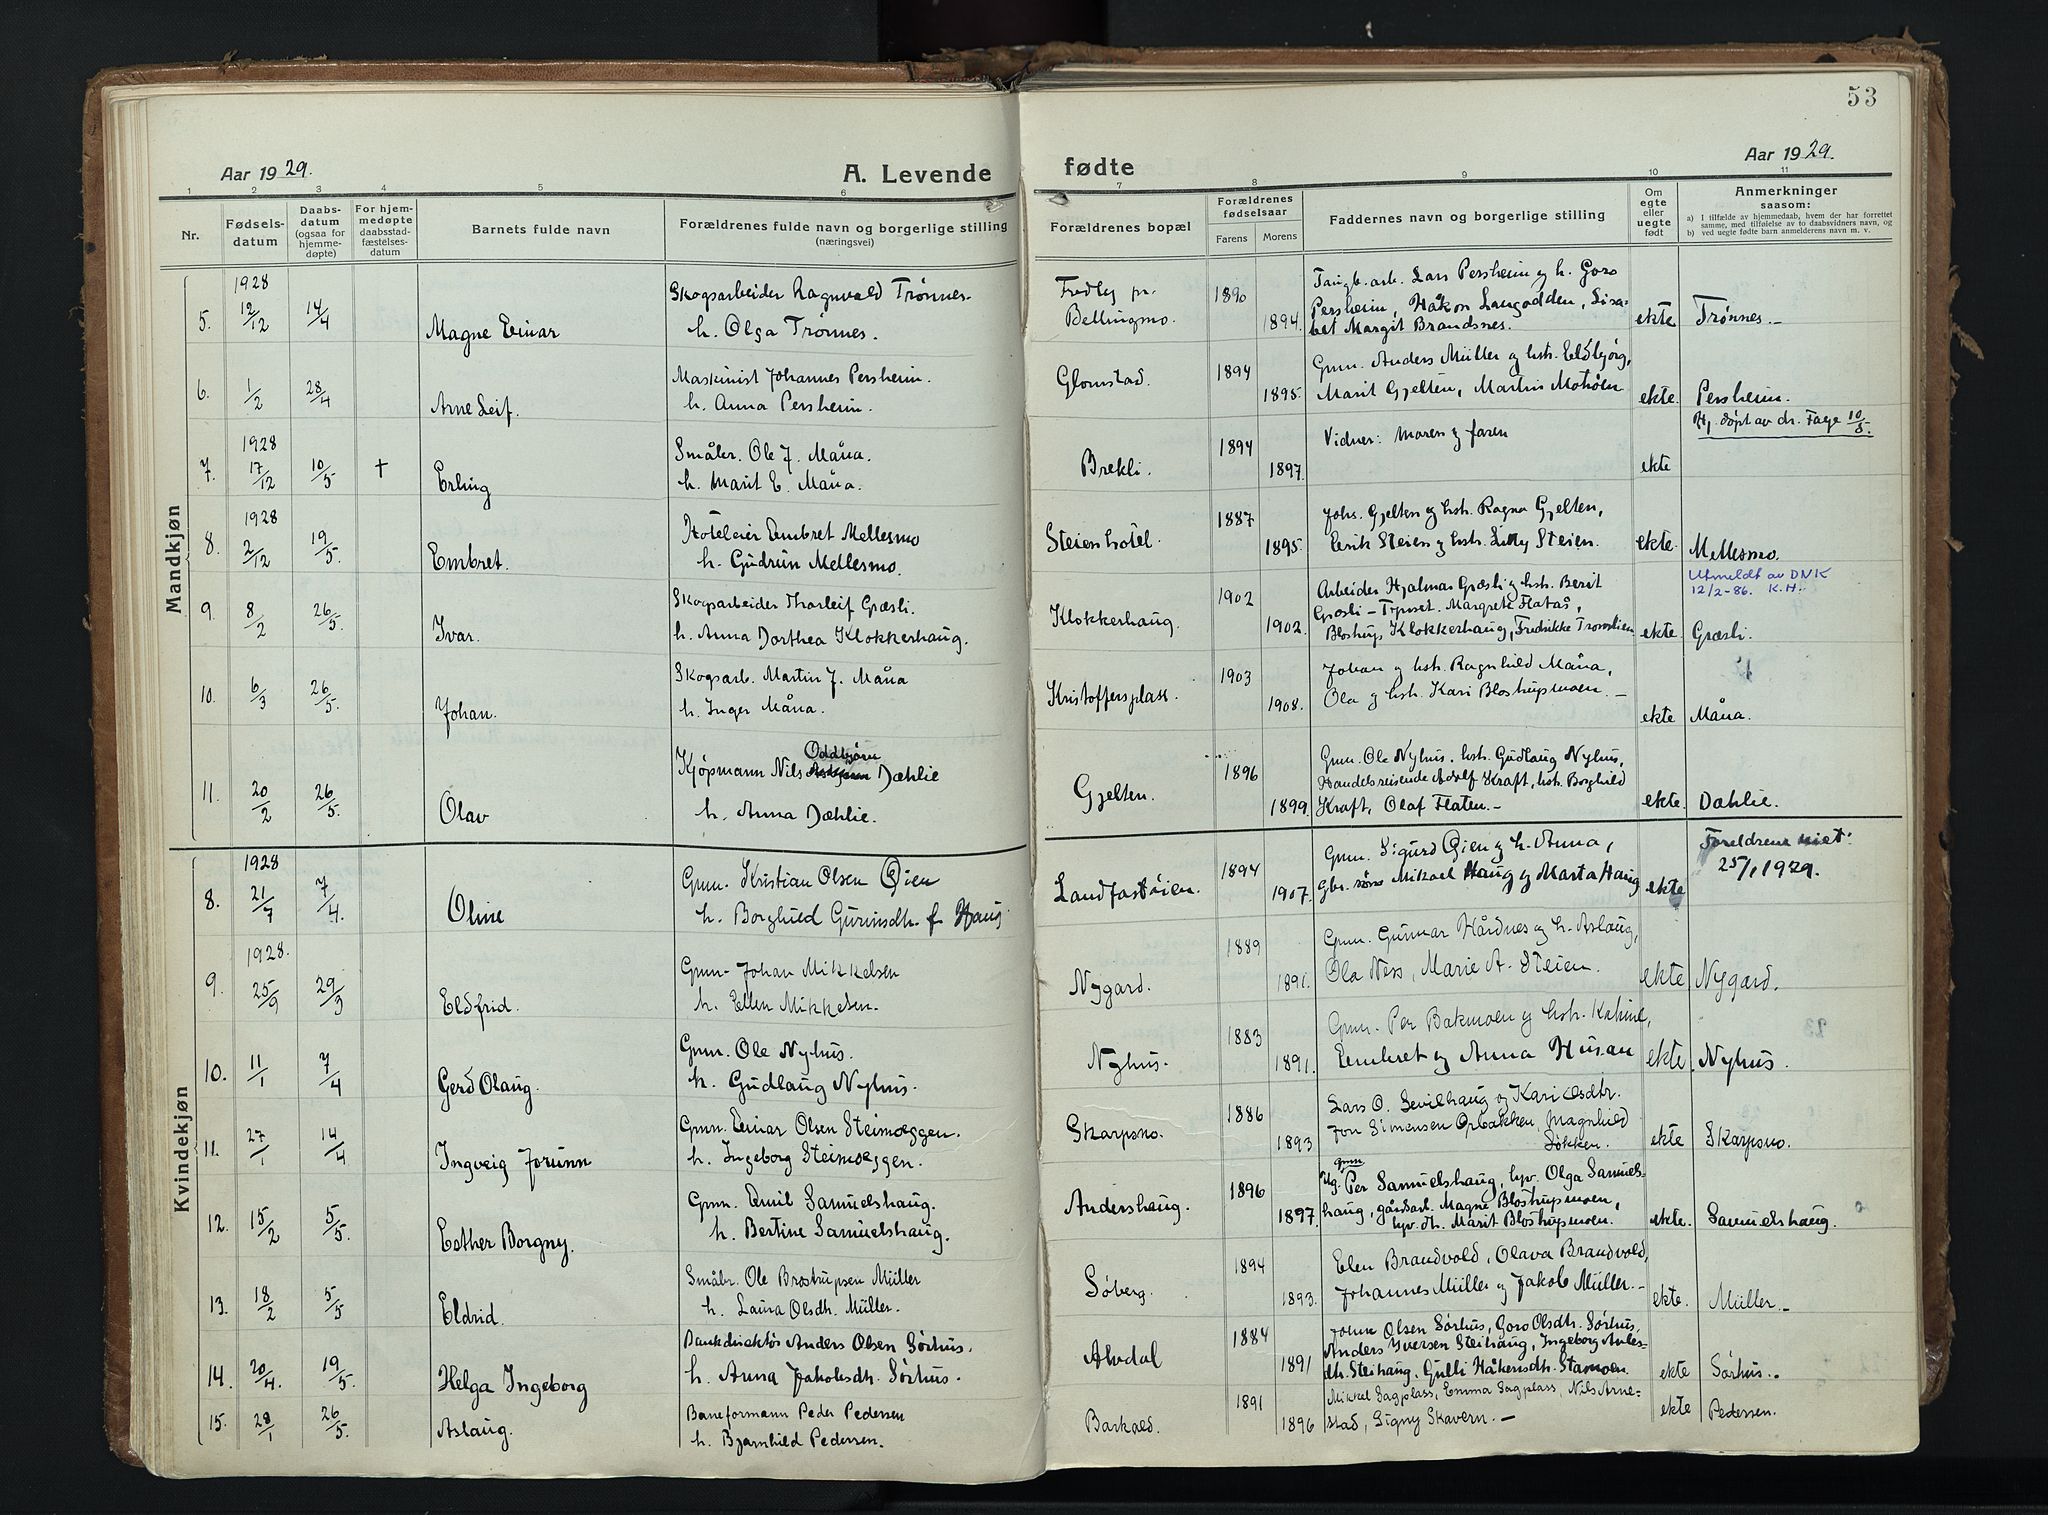 53
Aar 1929.
A. Levende fødte
Aar 1929.
1 2 3 4 5 6 7 8 9 10 11
Nr.
Fødselsdatum
Daabsdatum (ogsaa for hjemmedøpte)
For hjemmedøpte daabsstadfæstelsesdatum
Barnets fulde navn
Forældrenes fulde navn og borgerlige stilling (næringsvei)
Forældrenes bopæl
Forældrenes fødselsaar
Farens Morens
Faddernes navn og borgerlige stilling
Om egte eller uegte født
Anmerkninger saasom:
a) I tilfælde av hjemmedaab, hvem der har forrettet samme, med tilføielse av to daabsvidners navn, og
b) ved uegte fødte barn anmelderens navn m. v.
Mandkjøn
1928
5. 12/12 14/4 Magne Einar
Skogsarbeider Ragnvald Trønnes.
h. Olga Trønnes.
Fredly pr. Bellingmo.
1890 1894.
Lars Persheim og h. Goro
Persheim, Håkon Langodden, Lisa-
bet Margit Brandsnes.
ekte Trønnes.-
6. 1/2 28/4 Arne Leif.
Maskinist Johannes Persheim.
h. Anna Persheim.
Glomstad.
1894 1895.
Gmn. Anders Müller og hst. Eldbjörg,
Marit Gjelten, Martin Motrøen
ekte. Persheim.
1928
7. 17/12 10/5 † Erling
Småbr. Ole J. Måna.
h. Marit E. Måna.
Brekli.
1894 1897.
Vidner: Moren og faren
ekte
Hj. døpt av dr. Fage 10/5.
1928
8. 2/12 19/5. Embret.
Hoteleier Embret Mellesmo
h. Gudrun Mellesmo.
Steien hotel.
1887 1895.
Johs. Gjelten og hst. Ragna Gjelten,
Erik Steien og hst. Lilly Steien.
ekte. Mellesmo.
Utmeldt av DNK
12/2-86. K.H.
9. 8/2 26/5. Ivar.
Skogsarbeider Thorleif Græsli.
h. Anna Dorthea Klokkerhaug.
Klokkerhaug.
1902 1902.
Arbeider Hjalmar Græsli og hst. Berit
Græsli - Tynset. Margrete Flatås,
Blostrup Klokkerhaug, Fredrikke Tronslien
ekte. Græsli.
10. 6/3 26/5. Johan.
Skogsarb. Martin J. Måna
h. Inger Måna.
Kristoffersplass.
1903 1908.
Johan og hst. Ragnhild Måna,
Ola og hst. Kari Blostrupmoen.-
ekte Måna.
11. 20/2 26/5. Olav
Oddbjørn
Kjøpmann Nils Dæhlie
h. Anna Dæhlie.
Gjelten.
1896 1899.
Gmn. Ole Nyhus, hst. Gudlaug Nyhus,
Handelsreisende Adolf Kraft, hst. Borghild
Kraft, Olaf Flaten.-
ekte. Dæhlie.
Kvindekjøn
1928
8. 21/7 7/4. Oline
Gmn. Kristian Olsen Øien
h. Borghild Gurinsdh. f. Haug.
Landfastøien.
1894 1907.
Gmn. Sigurd Øien og h. Anna,
Mikael Haug og Marta Haug
ekte
Foreldrene viet:
25/1 1929.
1928.
9. 25/9 29/3 Eldfrid.
Gmn. Johan Mikkelsen
h. Ellen Mikkelsen.
Nygard.
1889 1891.
Gmn. Gunnar Hårdnes og h. Aslaug,
Ola Ness, Marie A. Steien.
ekte Nygard.
10. 11/1 7/4 Gerd Olaug.
Gmn. Ole Nyhus.
h. Gudlaug Nyhus.
Nyhus.
1883 1891.
Gmn. Per Bakmoen og hst. Katrine,
Embret og Anna Husan
ekte. Nyhus.
11. 27/1 14/4 Ingveig Jorunn
Gmn. Einar Olsen Steimoeggen.
h. Ingeborg Steimoeggen.
Skarpsno.
1886 1893
Lars O. Sevilhaug og Kari Olsdtr.
Jon Simensen Opbakken, Magnhild
Løkken.
ekte Skarpsno.
12. 15/2 5/5. Esther Borgny.
Gmn. Emil Samuelshaug.
h. Bertine Samuelshaug.
Andershaug.
1896 1897.
gmn.
Ug. Per Samuelshaug, hpv. Olga Samuels-
haug, gårdsarb. Magne Blostrupmoen,
hpv. dh. Marit Blostrupmoen.
ekte. Samuelshaug.
13. 18/2 5/5 Eldrid.
Småbr. Ole Brostrupsen Müller
h. Laura Olsdh. Müller.
Søberg.
1894 1893.
Elen Brandvold, Olava Brandvold,
Johannes Müller og Jakob Müller.-
ekte. Müller.-
14. 20/4. 19/5. Helga Ingeborg
Bankdirektør Anders Olsen Sørhus.
h. Anna Jakobsdh. Sørhus.
Alvdal
1884 1891
Johan Olsen Sørhus, Goro Olsdh. Sørhus,
Anders Iversen Steihaug, Ingeborg Anders-
dh. Steihaug, Gulli Håkensdh. Stamoen.
ekte Sørhus.-
15. 28/1 26/5. Aslaug.
Baneformann Peder Pedersen
h. Bjarnhild Pedersen.
Barkald.
1891 1896
Mikkel Sagplass, Emma Sagplass, Nils Arne-
stad, Signy Skavern.-
ekte Pedersen.